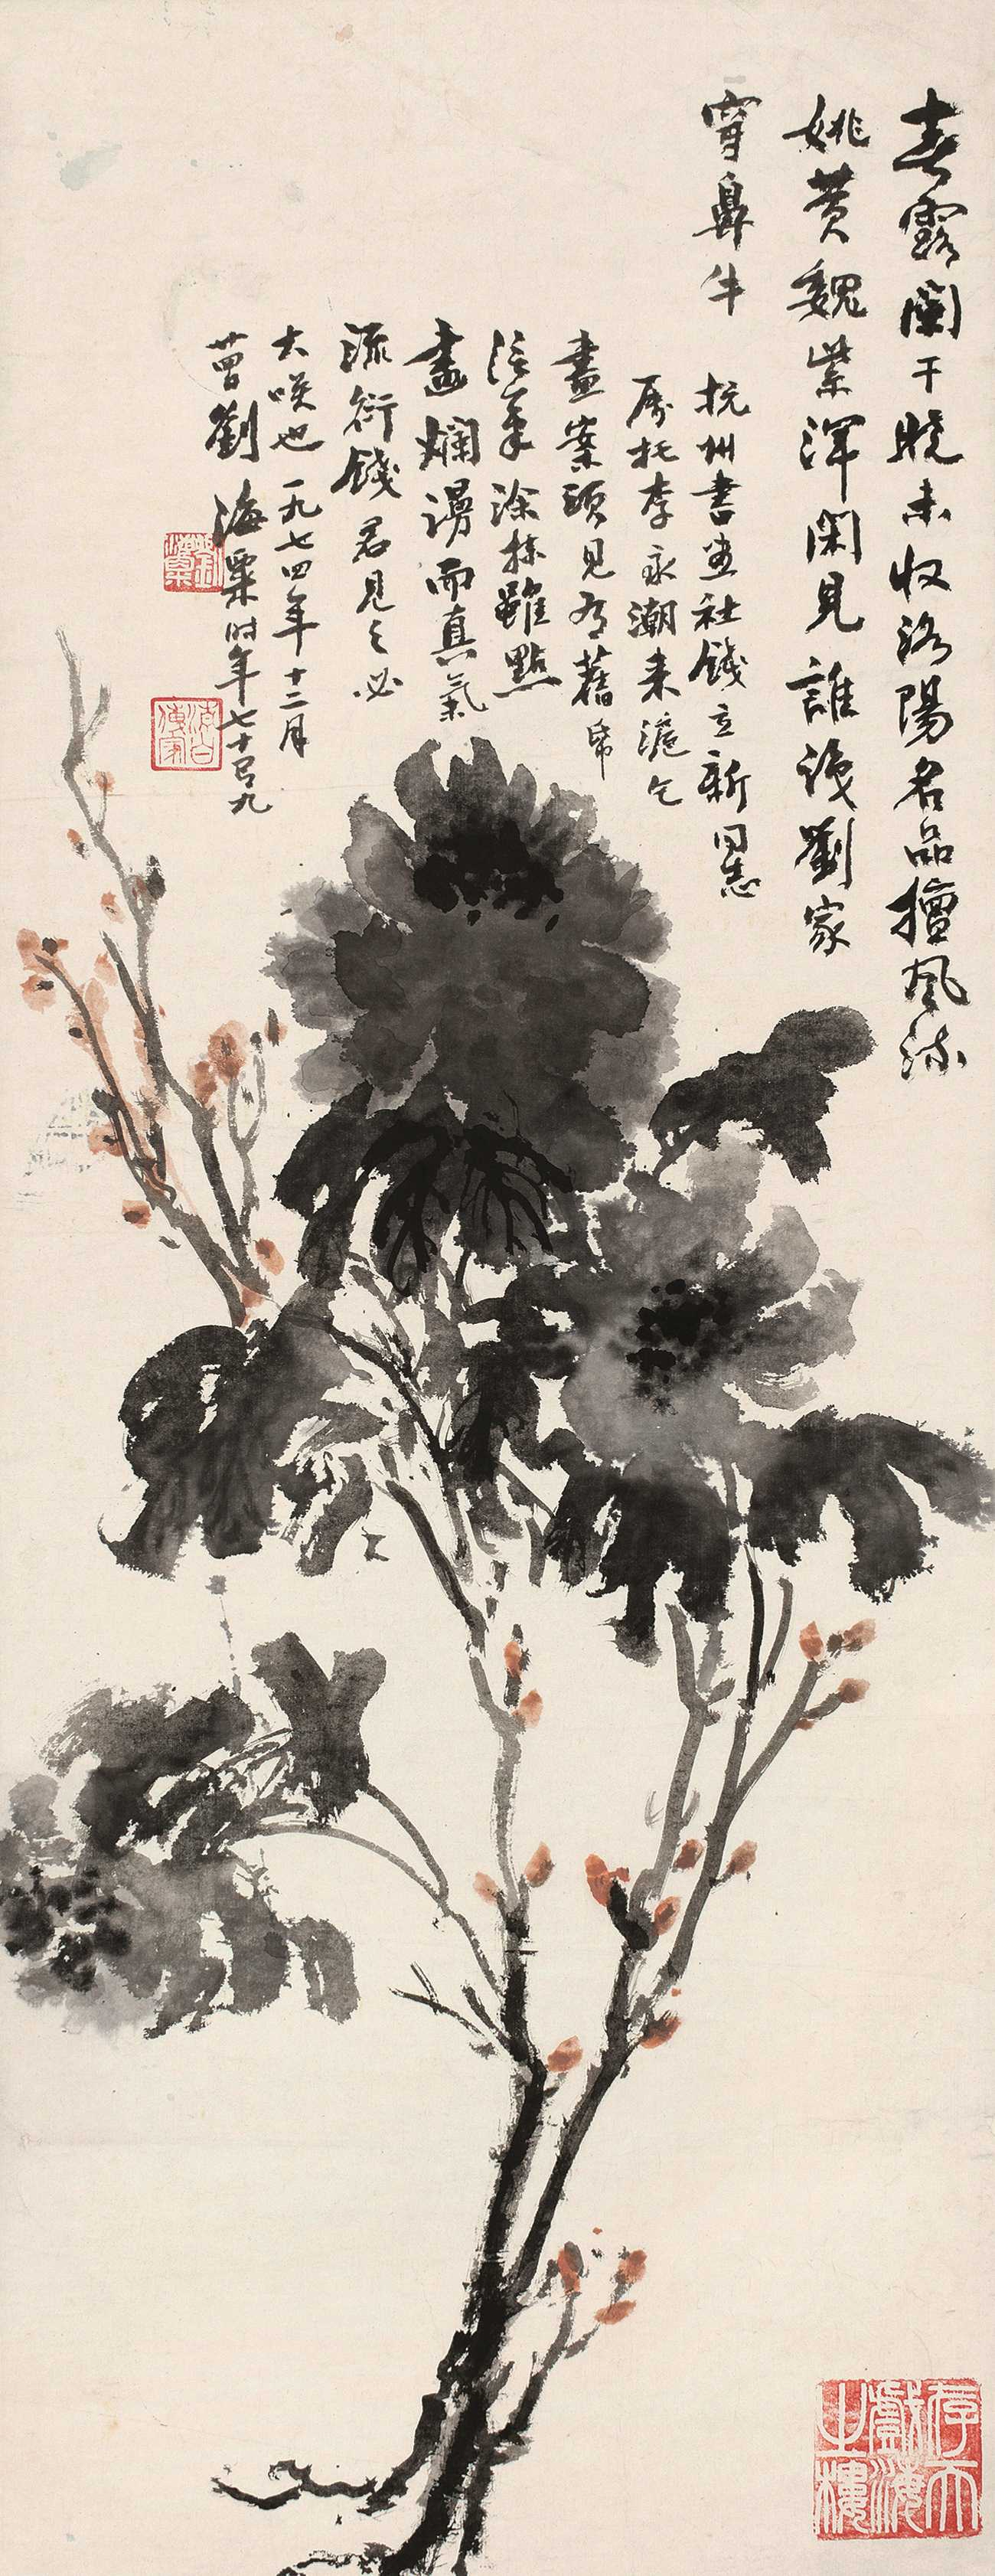 春露闌干曉未收洛陽名品擅風流
姚黃魏紫渾閑見誰識劉家
穿鼻牛
杭州書画社錢立新同志
屬托李永潮来滬乞
畫案頭見有舊帋
信筆涂抹雖點
畫爛漫而真氣
流衍錢君見之必
大咲也一九七四年十二月
芸劉海粟时年七十有九
劉海粟
存天
戲海
之樓